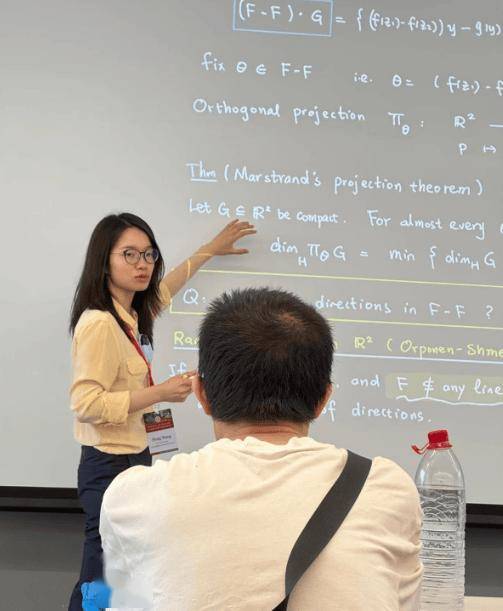 (F-F)·G = { (f(z₁)-f(z₂)) y - g(y)
fix θ ∈ F-F i.e. θ = (f(z₁)-f
Orthogonal projection π_θ : ℝ²
P ↦
Thm (Marstrand's projection theorem)
Let G ⊆ ℝ² be compact. For almost every
dim_H π_θ G = min { dim_H G
Q: directions in F-F ?
Ra ℝ² (Orponen-Shme
If and F ⊄ any line
of directions.